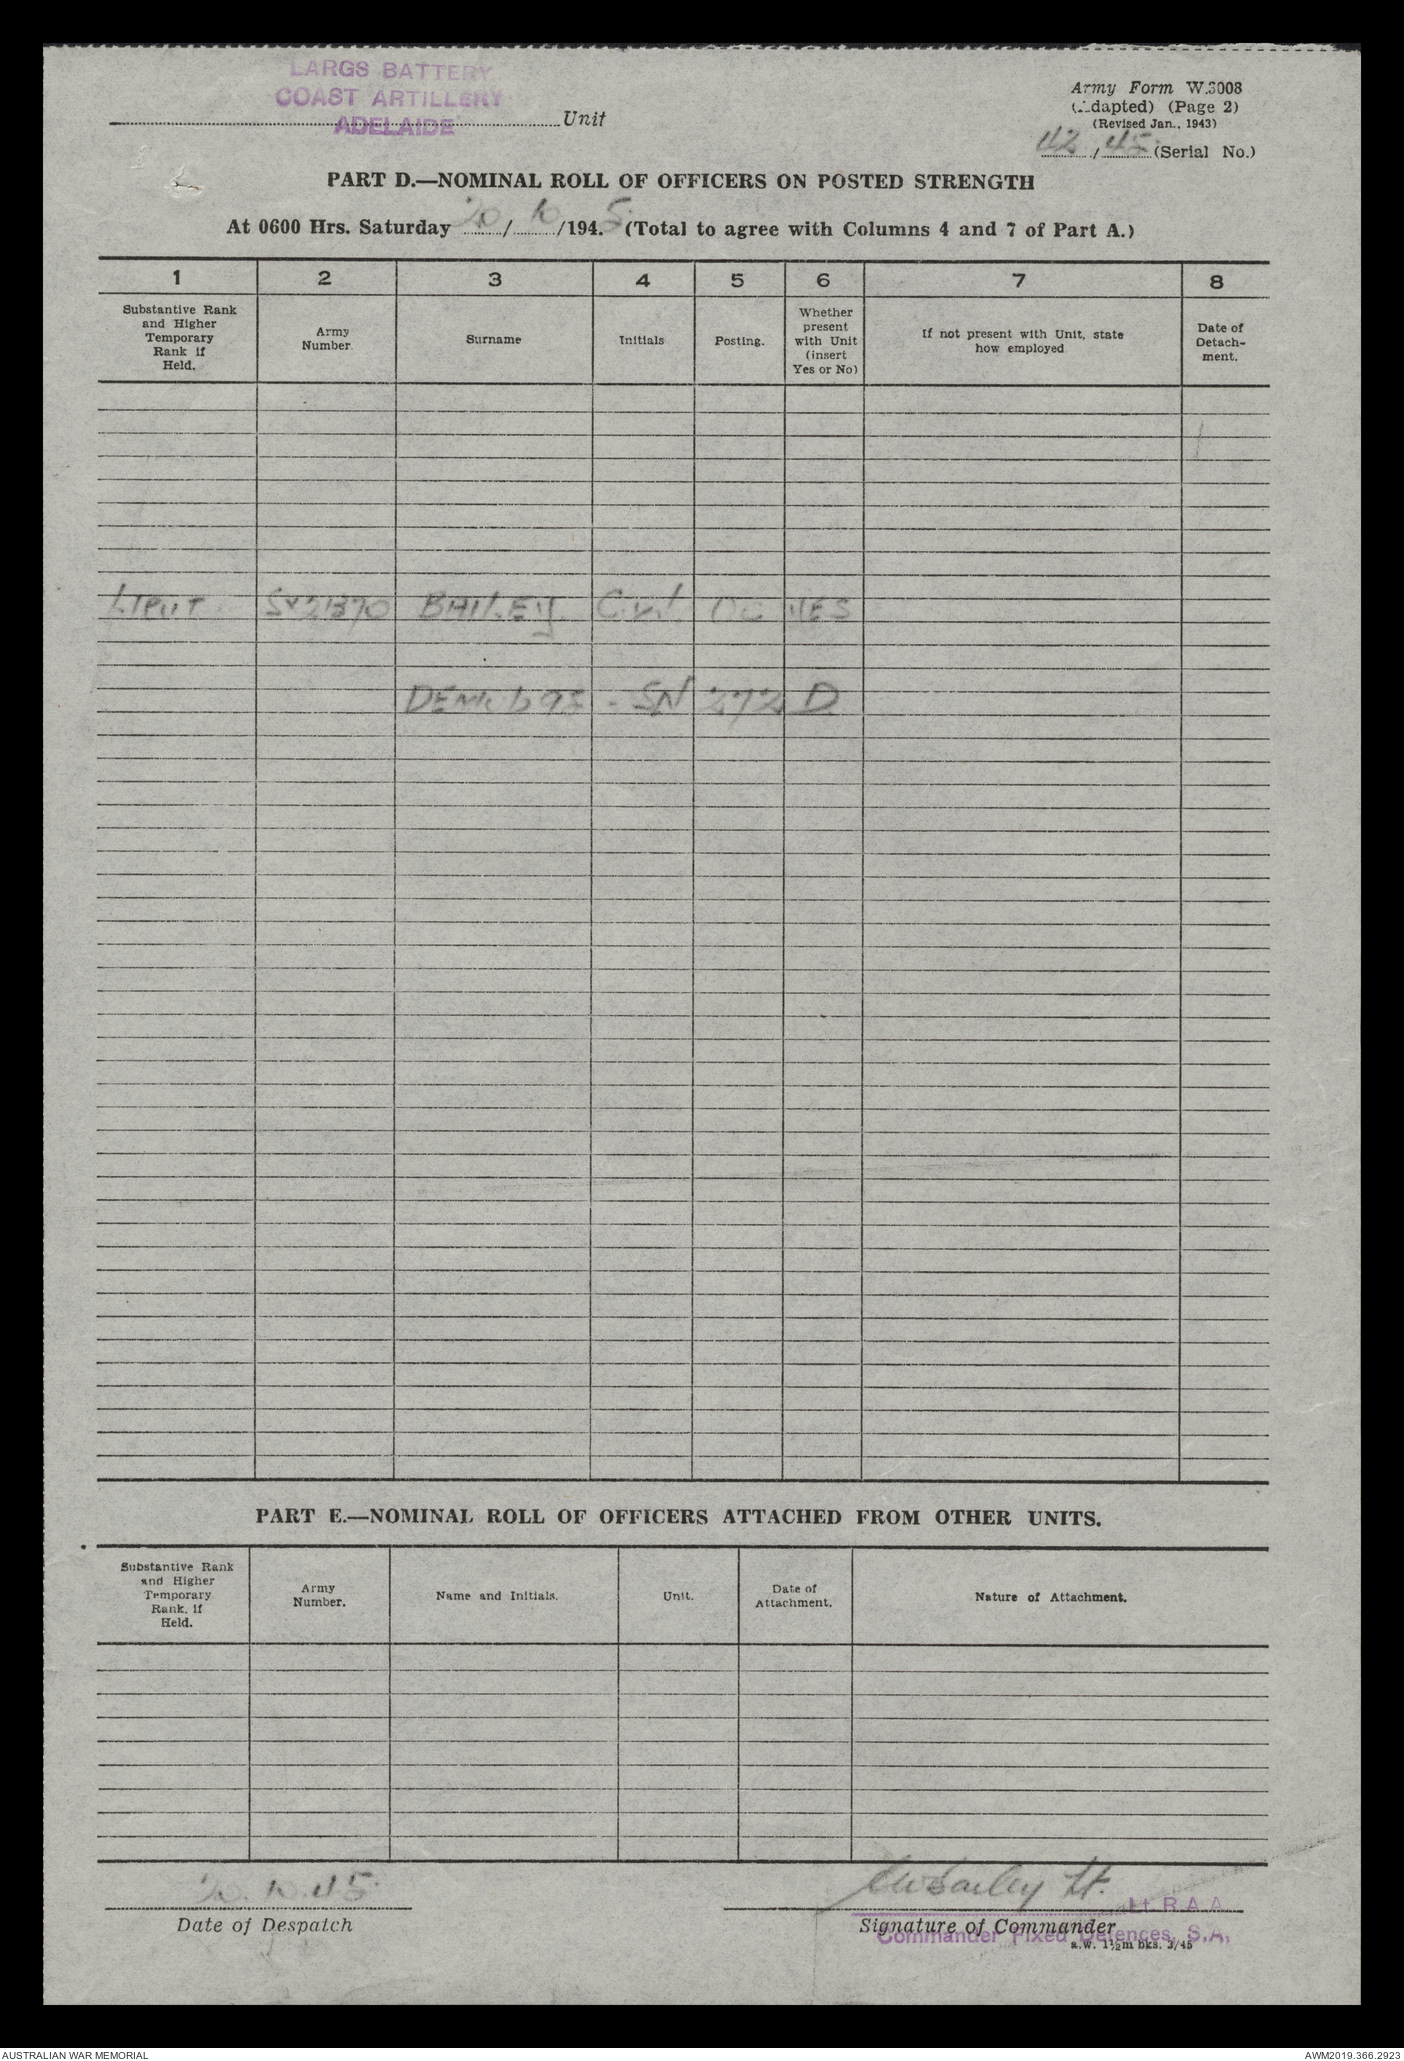 LARGS BATTERY
COAST ARTILLERY
ADELAIDE
Unit
Army Form W.3008
(Adapted) (Page 2)
(Revised Jan., 1943)
42/45 (Serial No.)
PART D.—NOMINAL ROLL OF OFFICERS ON POSTED STRENGTH
At 0600 Hrs. Saturday 20/10/1945 (Total to agree with Columns 4 and 7 of Part A.)
1 2 3 4 5 6 7 8
Substantive Rank and Higher Temporary Rank if Held.
Army Number
Surname
Initials
Posting.
Whether present with Unit (insert Yes or No)
If not present with Unit, state how employed
Date of Detach-ment.
Lieut BAILEY C.W. OC YES
SN 272 D
PART E.—NOMINAL ROLL OF OFFICERS ATTACHED FROM OTHER UNITS.
Substantive Rank and Higher Temporary Rank. if Held.
Army Number.
Name and Initials.
Unit.
Date of Attachment.
Nature of Attachment.
20.10.45.
Date of Despatch
CW Bailey Lt.
Lt R A A
Signature of Commander
Commander Fixed Defences, S.A.
a.w. 1½m bks. 3/45
AUSTRALIAN WAR MEMORIAL
AWM2019.366.2923